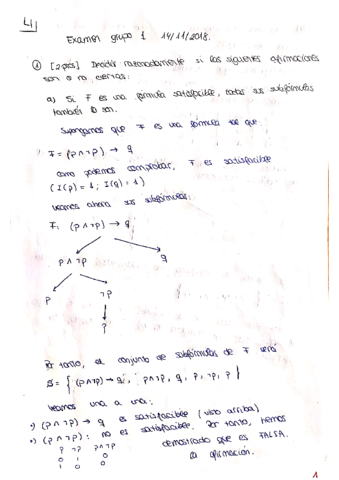 4
Examen grupo 1 14/11/2018.
① [2 ptos] Decidir razonadamente si las siguientes afirmaciones
son o no ciertas:
a) Si F es una fórmula satisfacible, todas sus subfórmulas
también lo son.
Supongamos que F es una fórmula tal que
F = (p ∧ ¬p) → q
como podemos comprobar, F es satisfacible
(I(p) = 1; I(q) = 1)
veamos ahora sus subfórmulas:
F: (p ∧ ¬p) → q
p ∧ ¬p q
p ¬p
p
Por tanto, el conjunto de subfórmulas de F será
S = { (p ∧ ¬p) → q, p ∧ ¬p, q, p, ¬p, p }
veamos una a una:
(p ∧ ¬p) → q es satisfacible (visto arriba)
(p ∧ ¬p): no es satisfacible. Por tanto, hemos
p ¬p p∧¬p demostrado que es FALSA.
0 1 0 la afirmación.
1 0 0
1